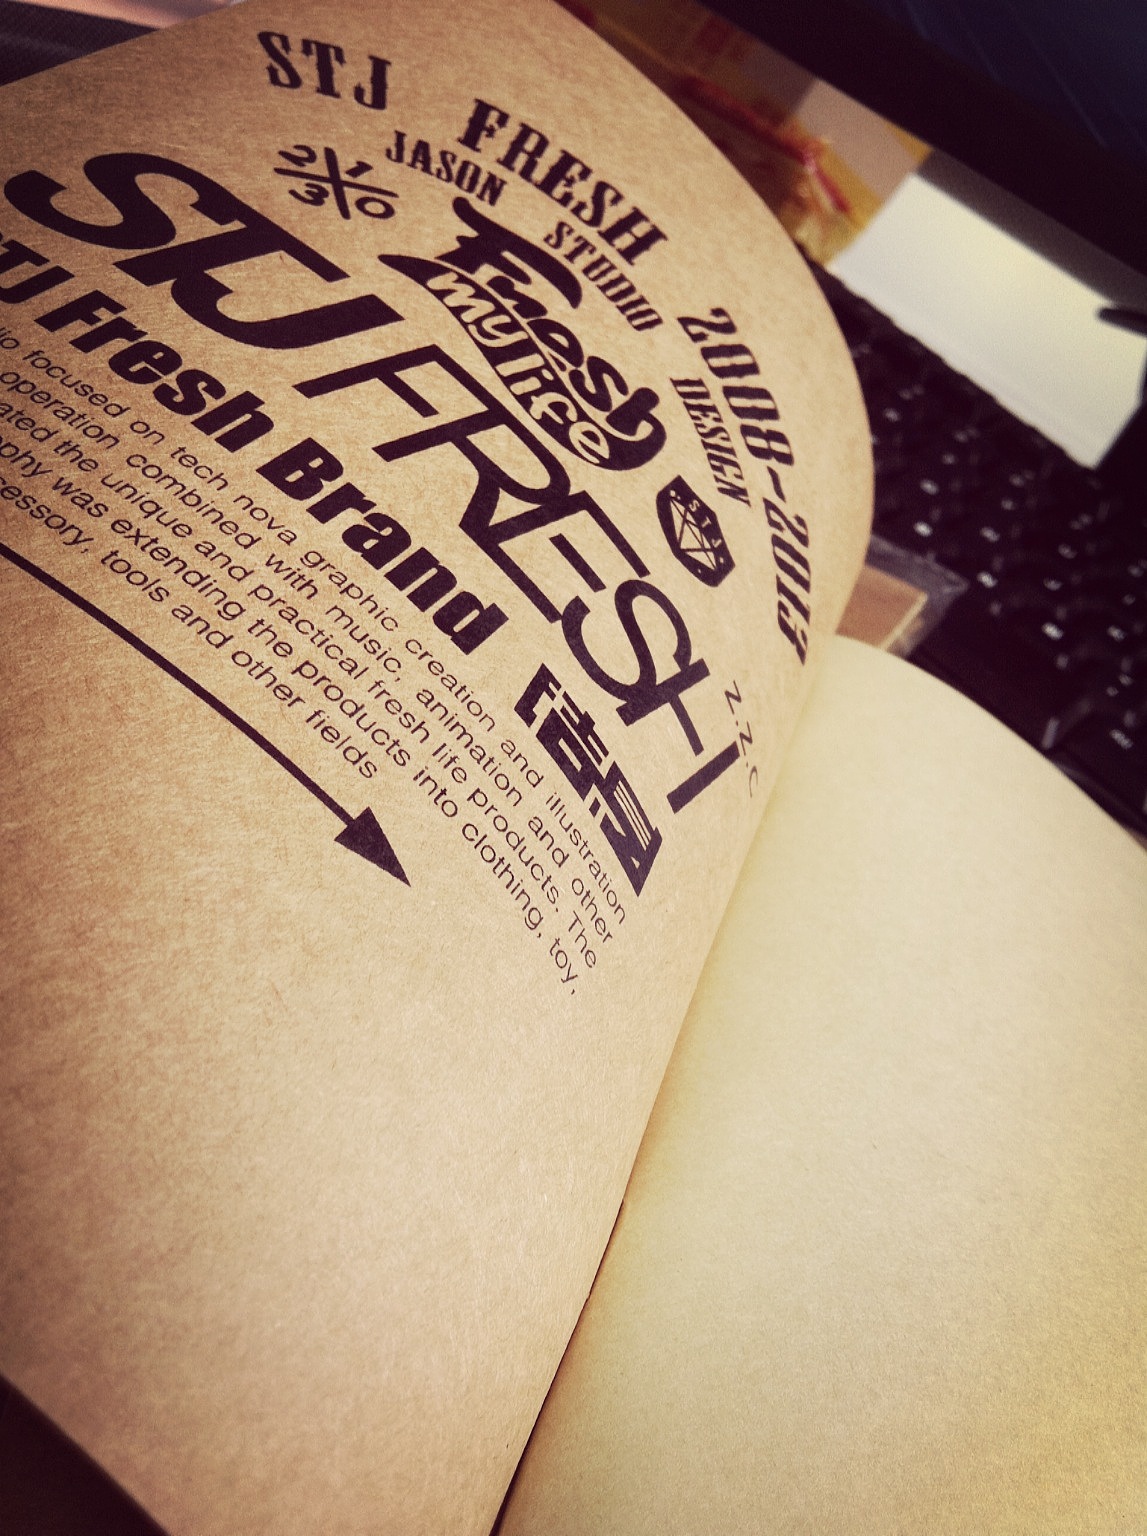 STJ FRESH 2008-2013
JASON STUDIO DESIGN
2 1
3 0
Fresh
my life
STJ
STJ FRESH
Z.Z.C
STJ Fresh Brand
focused on tech nova graphic creation and illustration
operation combined with music, animation and other
the unique and practical fresh life products. The
was extending the products into clothing, toy,
tools and other fields